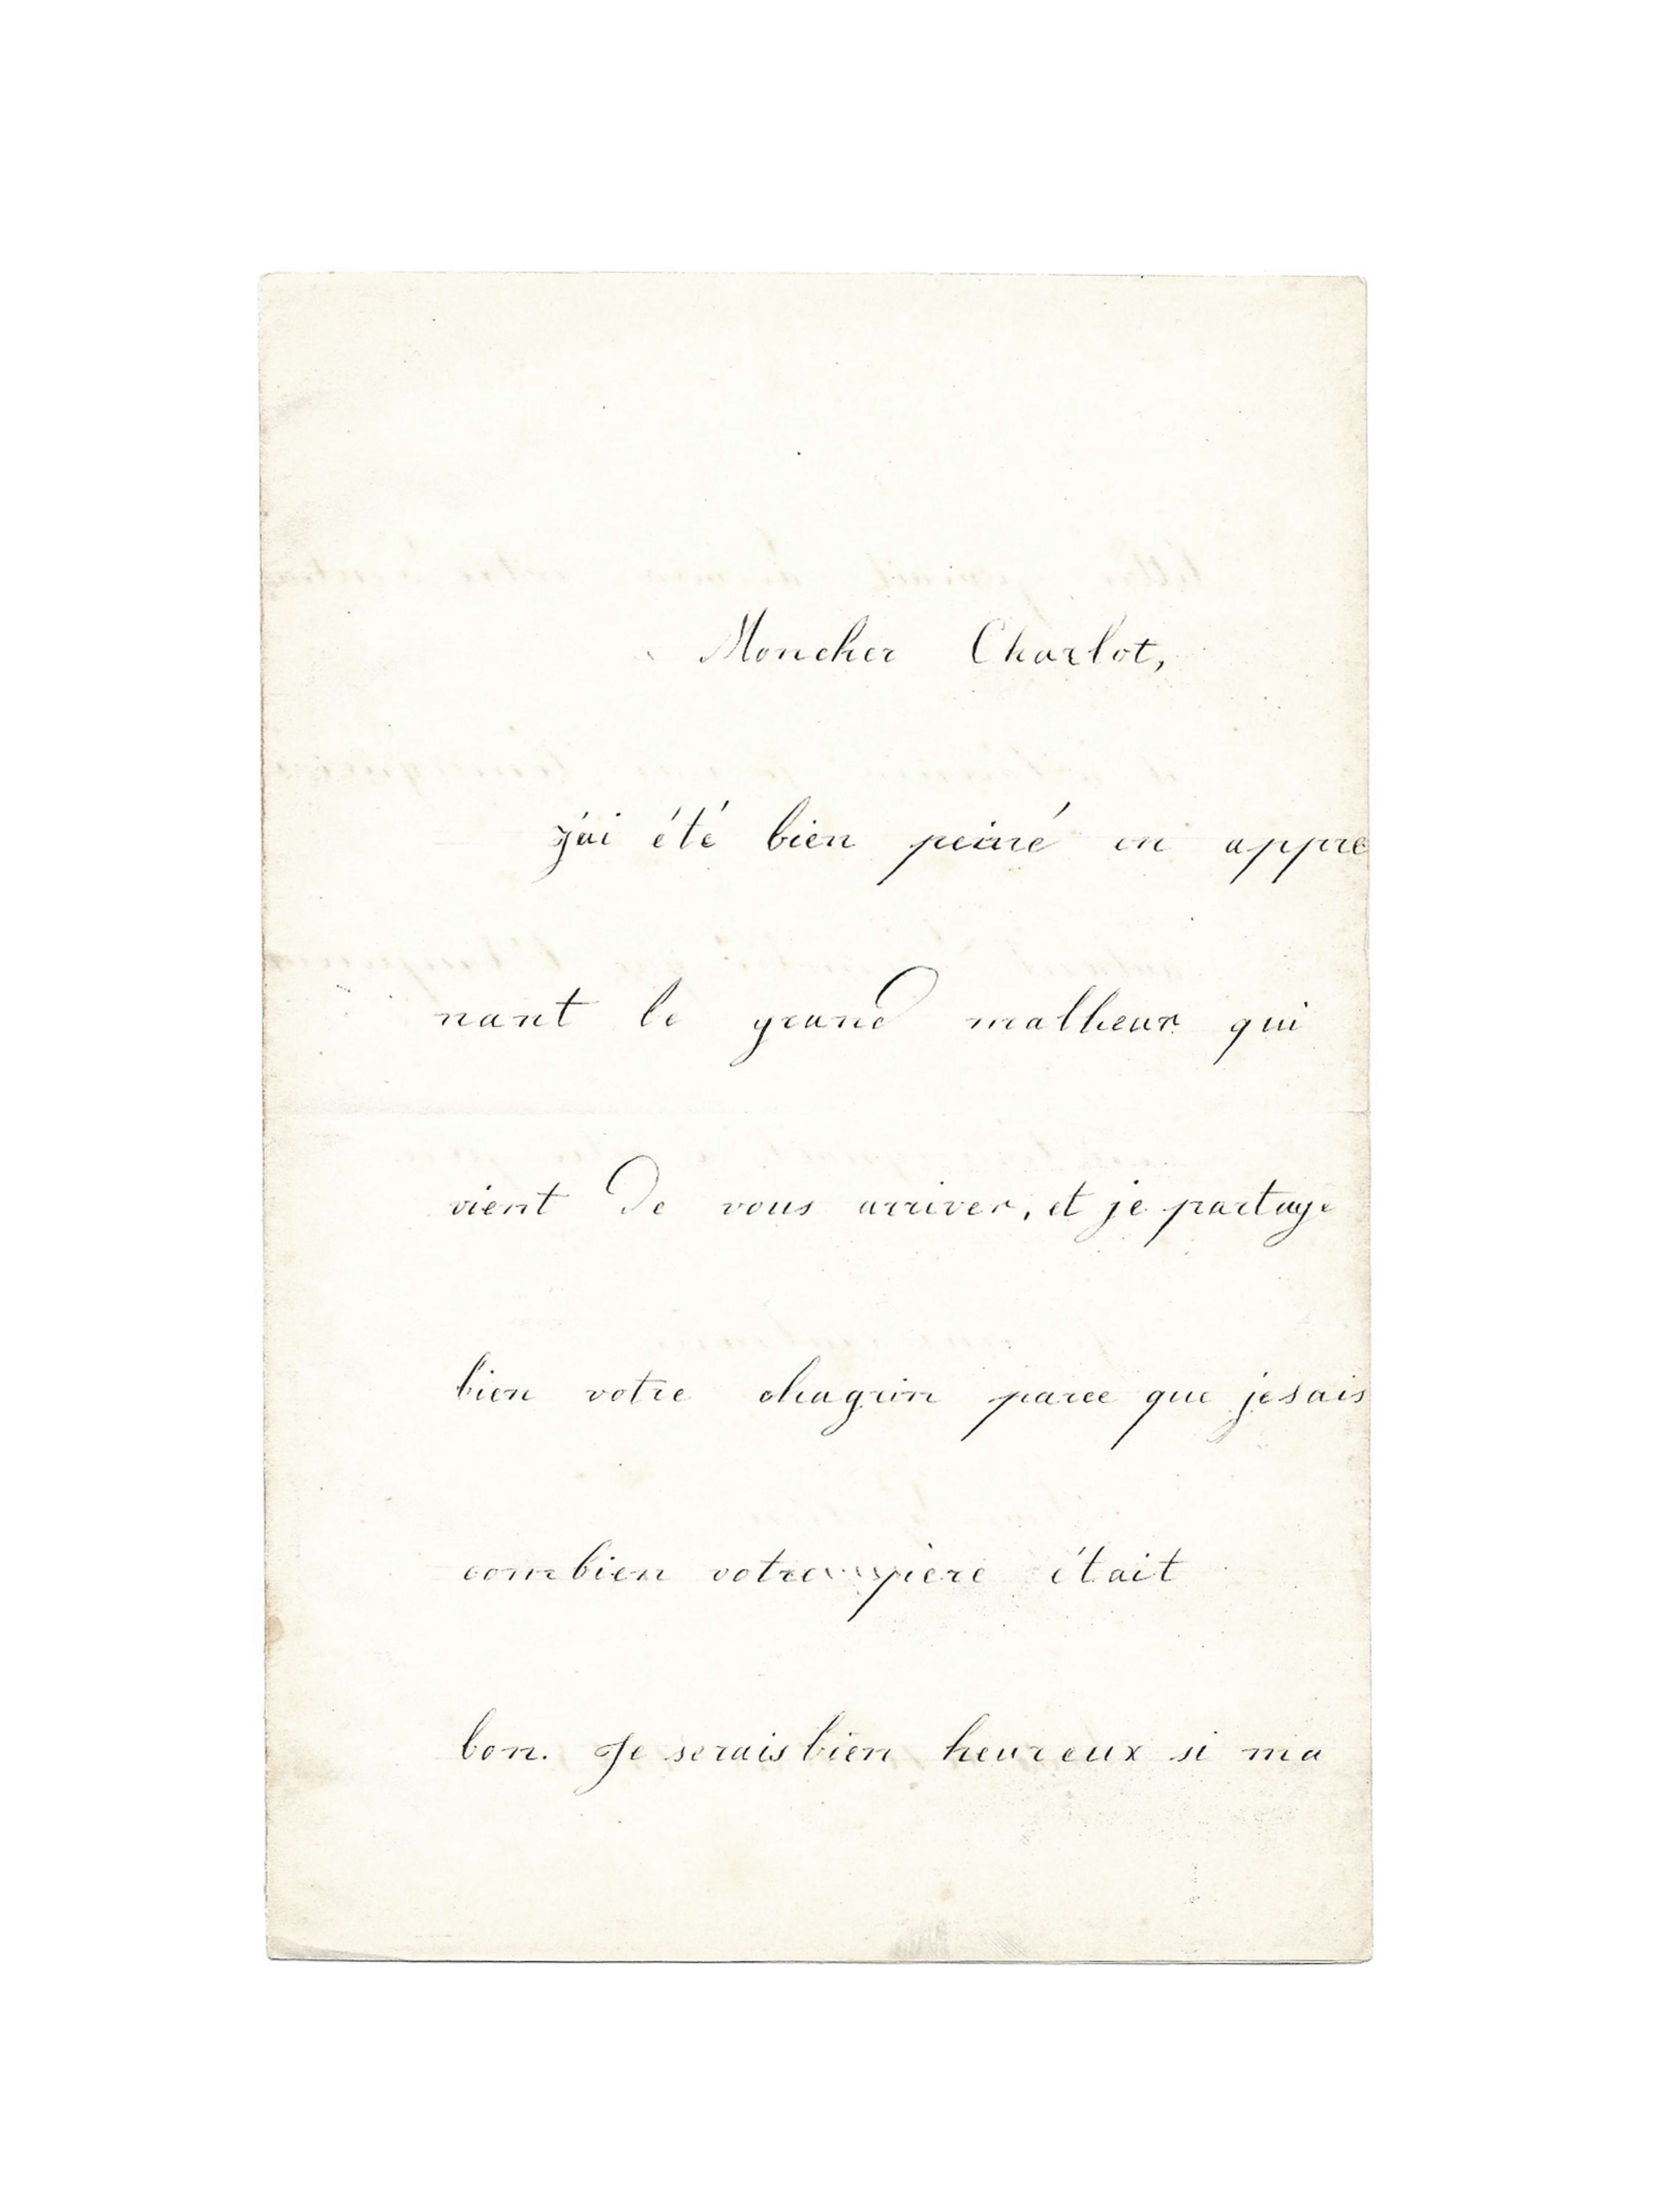 Moncher Charlot,
j'ai été bien peiné en appre
nant le grand malheur qui
vient de vous arriver, et je partage
bien votre chagrin parce que je sais
combien votre père était
bon. Je serais bien heureux si ma